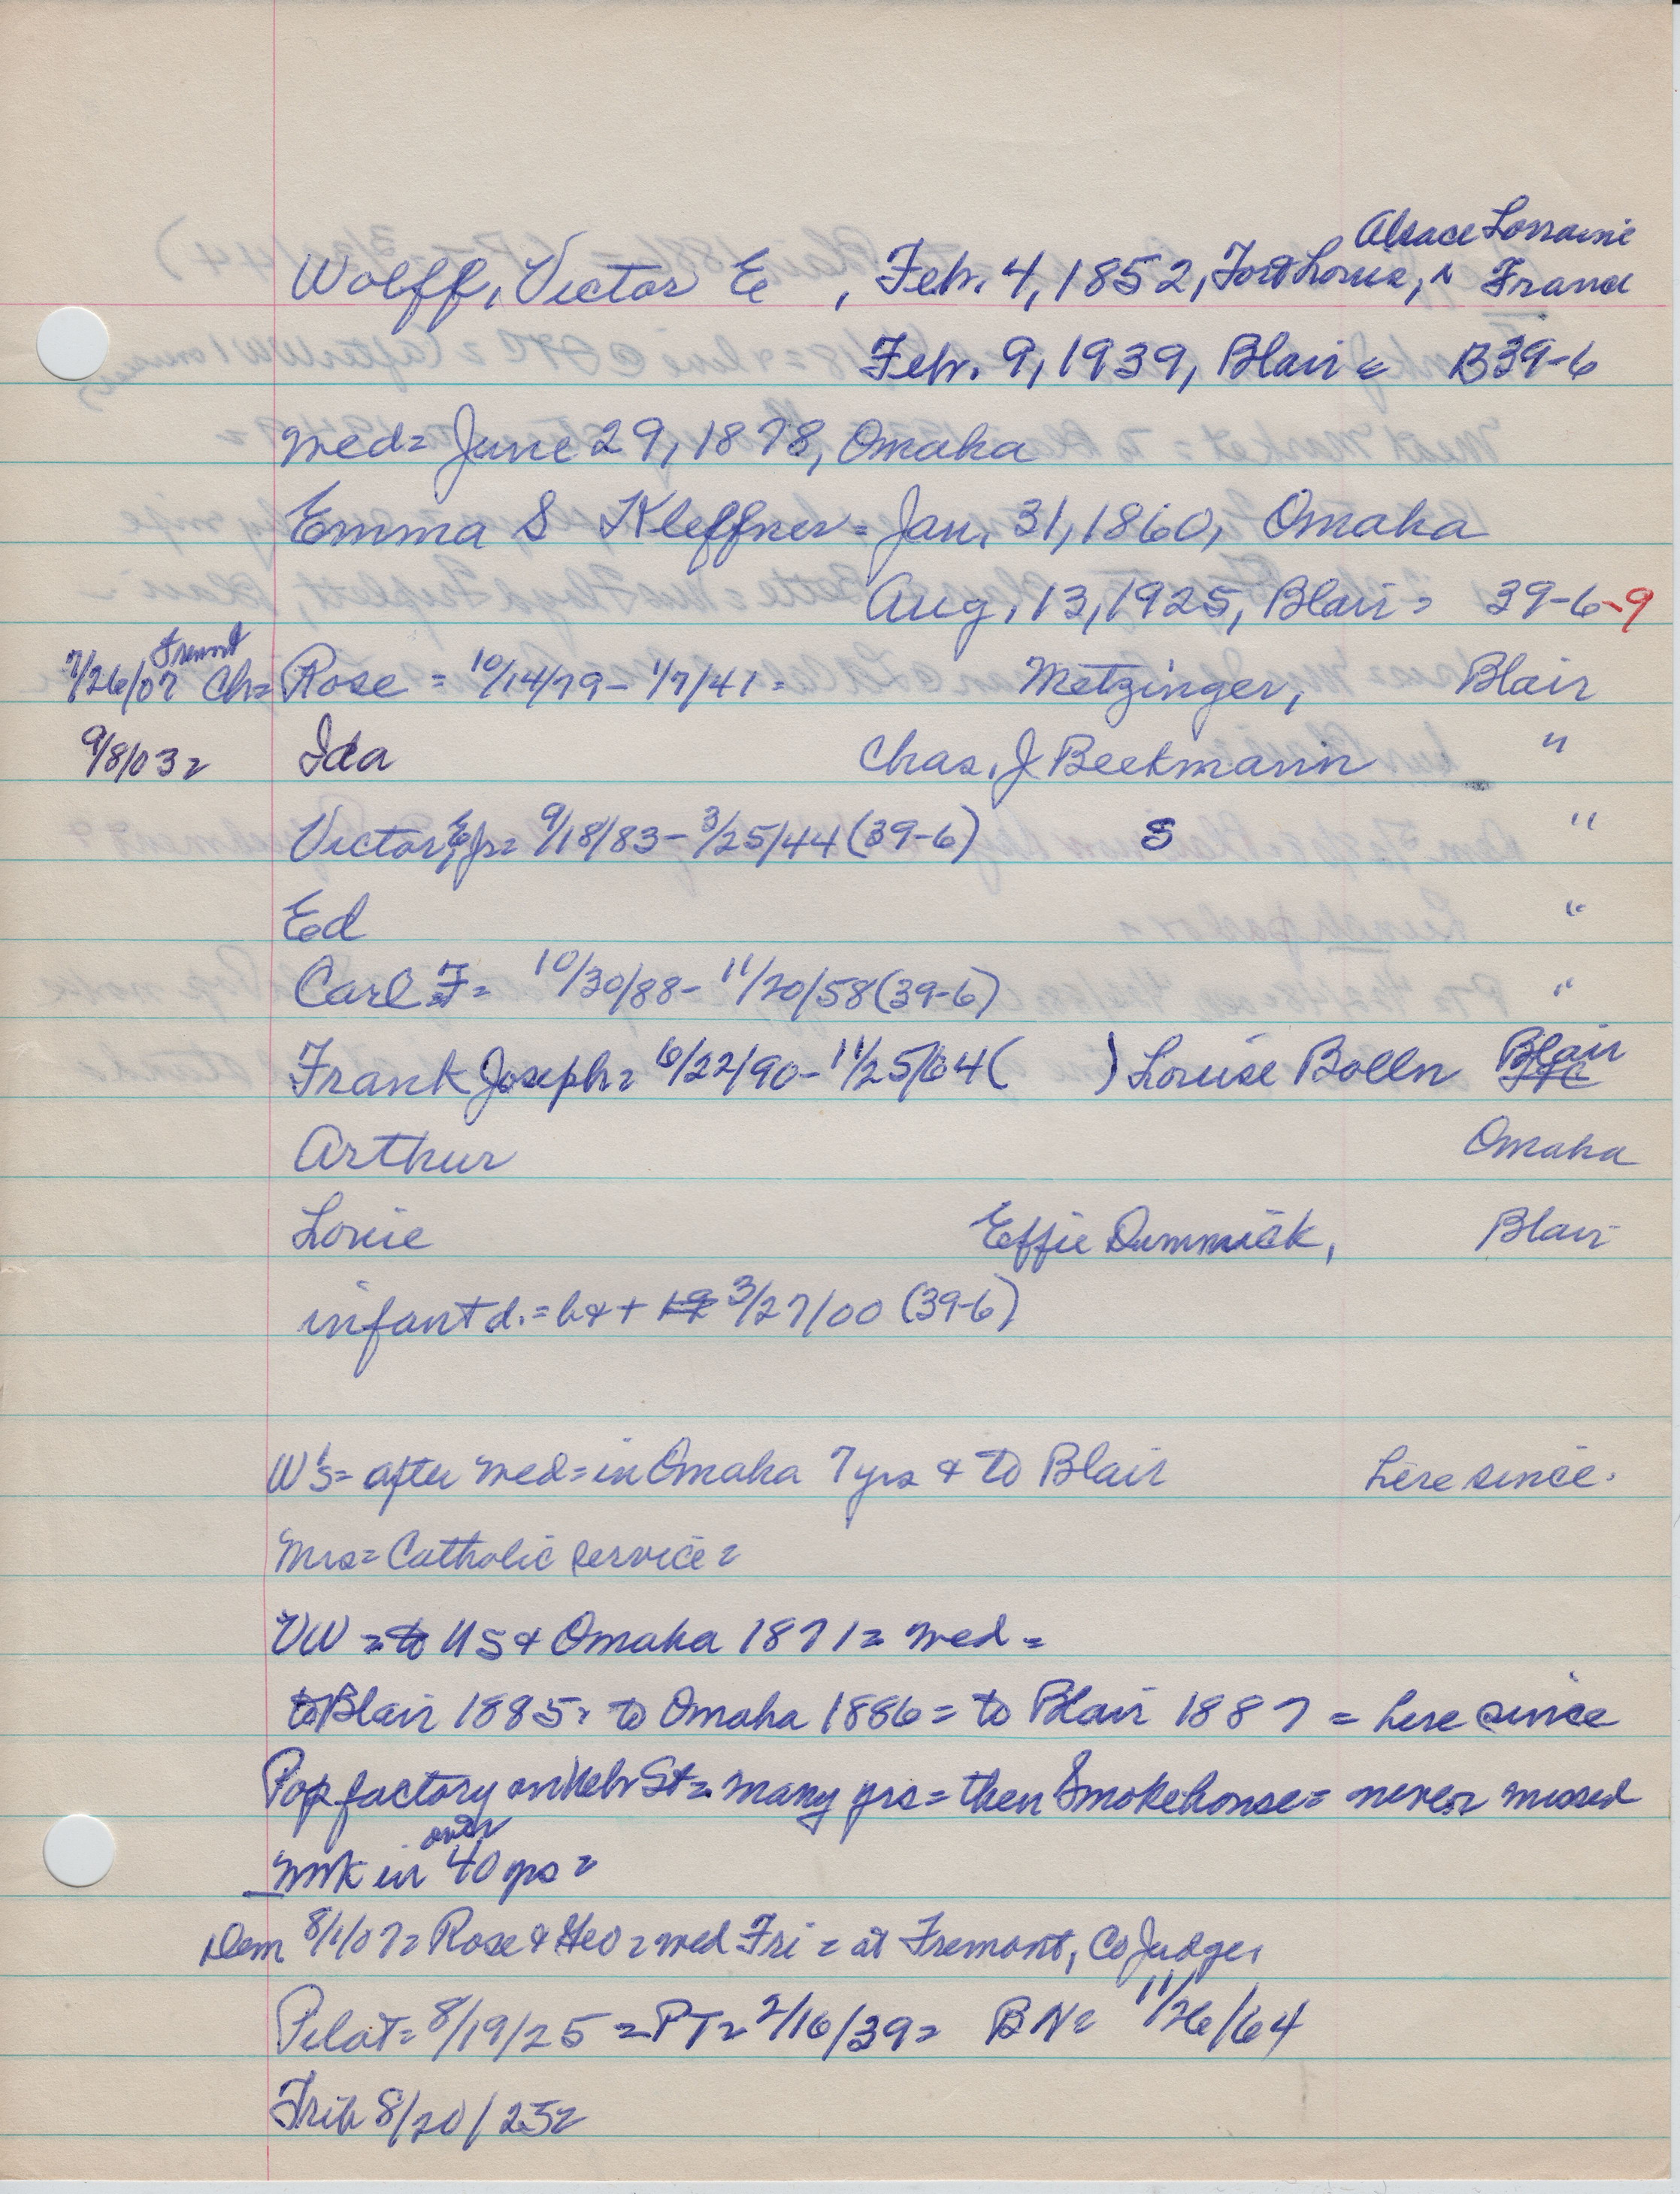 Alsace Lorraine
Wolff, Victor E , Feb. 4, 1852, Fort Louis, ^ France
Feb. 9, 1939, Blair = B39-6
med= June 29, 1878, Omaha
Emma S Kleffner = Jan. 31, 1860, Omaha
Aug. 13, 1925, Blair = 39-6-9
Fremont
7/26/07 Ch= Rose = 10/14/79 - 1/7/41 = Metzinger, Blair
9/8/03 = Ida Chas. J Beekmann "
Victor E Jr= 9/18/83 - 3/25/44 (39-6) S "
Ed "
Carl F= 10/30/88 - 11/20/58 (39-6) "
Frank Joseph = 6/22/90 - 11/25/64 ( ) Louise Bolln Blair
Arthur Omaha
Louie Effie Dummick, Blair
infant d. = b & + 3/27/00 (39-6)
W's= after med = in Omaha 7 yrs & to Blair here since.
Mrs= Catholic service =
VW = to US & Omaha 1871 = med =
to Blair 1885 = to Omaha 1886 = to Blair 1887 = here since
Pop factory on Neb St = many yrs = then Smokehouse = never missed
over
work in 40 yrs =
Dem 8/1/07 = Rose & Geo = med Fri = at Fremont, Co Judge,
Pilot = 8/19/25 = PT = 2/16/39 = BN = 11/26/64
Trib 8/20/25 =